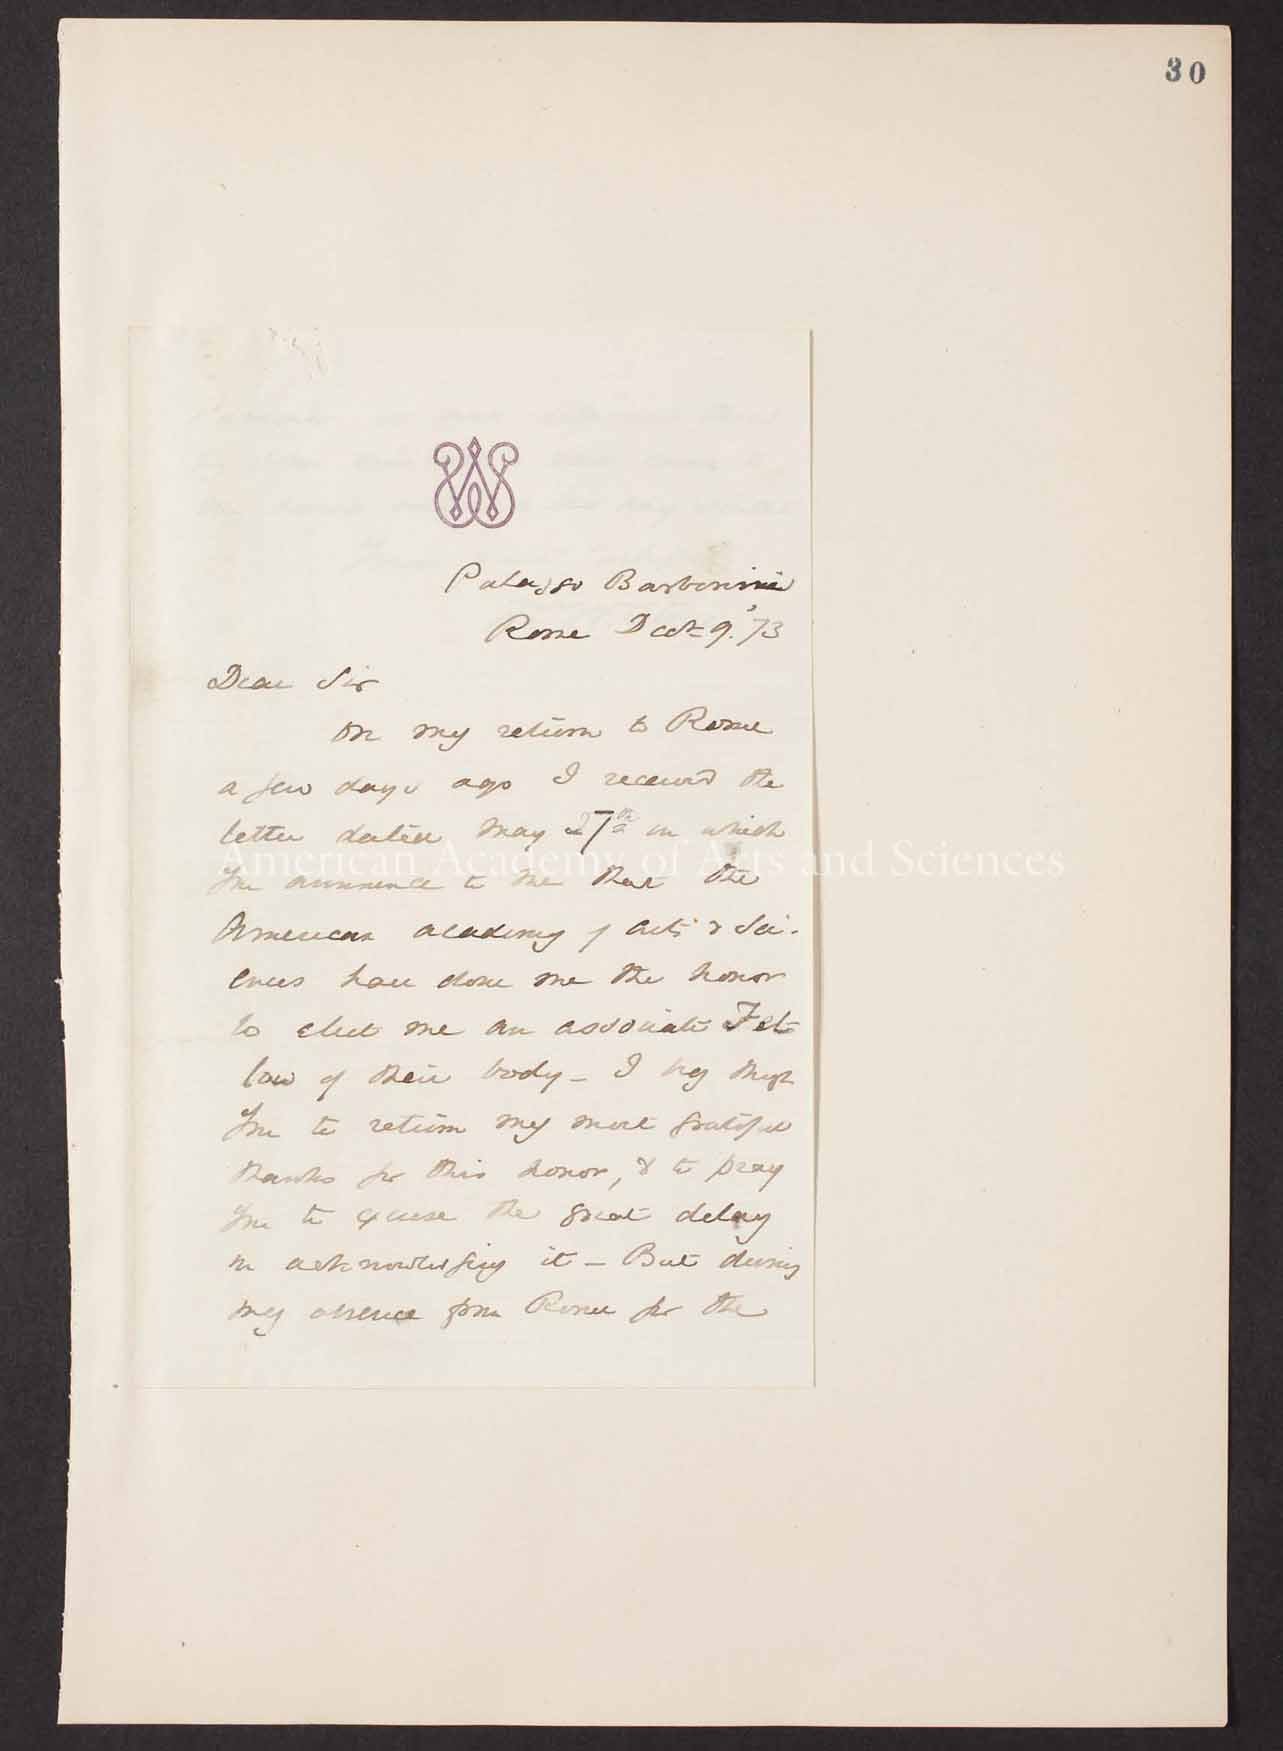 30
WS
Palazzo Barberini
Rome Oct 9. '73
Dear Sir
On my return to Rome
a few days ago I received the
letter dated May 27th in which
American Academy of Arts and Sciences
you announce to me that the
American Academy of Arts & Sci-
ences have done me the honor
to elect me an associate Fel-
low of their body – I beg thro
you to return my most grateful
thanks for this honor, & to pray
you to excuse the great delay
in acknowledging it – But during
my absence from Rome for the